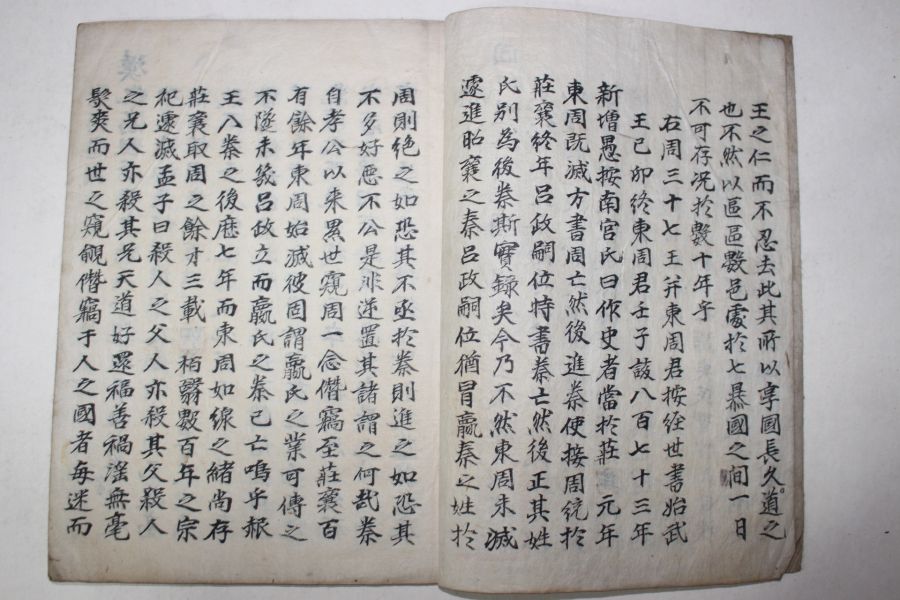 王之仁而不忍去此其所以享國長久道之
也不然以區區數邑處於七暴國之間一日
不可存况於數十年乎
右周三十七王并東周君按經世書始武
王己卯終東周君壬子該八百七十三年
新增愚按南宮氏曰作史者當於莊元年
東周既滅方書周亡然後進秦使接周統於
莊襄終年呂政嗣位特書秦亡然後正其姓
氏別為後秦斯實錄矣今乃不然東周未滅
遽進昭襄之秦呂政嗣位猶冒嬴秦之姓於
周則絶之如恐其不亟於秦則進之如恐其
不多好惡不公是非逆置其諸謂之何哉秦
自孝公以來累世窺周一念僭竊至莊襄百
有餘年東周始滅彼固謂嬴氏之業可傳之
不墜未幾呂政立而嬴氏之秦已亡嗚乎赧
王入秦之後歴七年而東周如線之緒尚存
莊襄取周之餘才三載栢翳數百年之宗
祀遽滅孟子曰殺人之父人亦殺其父殺人
之兄人亦殺其兄天道好還福善禍滛無毫
髮爽而世之窺覦僭竊于人之國者每迷而